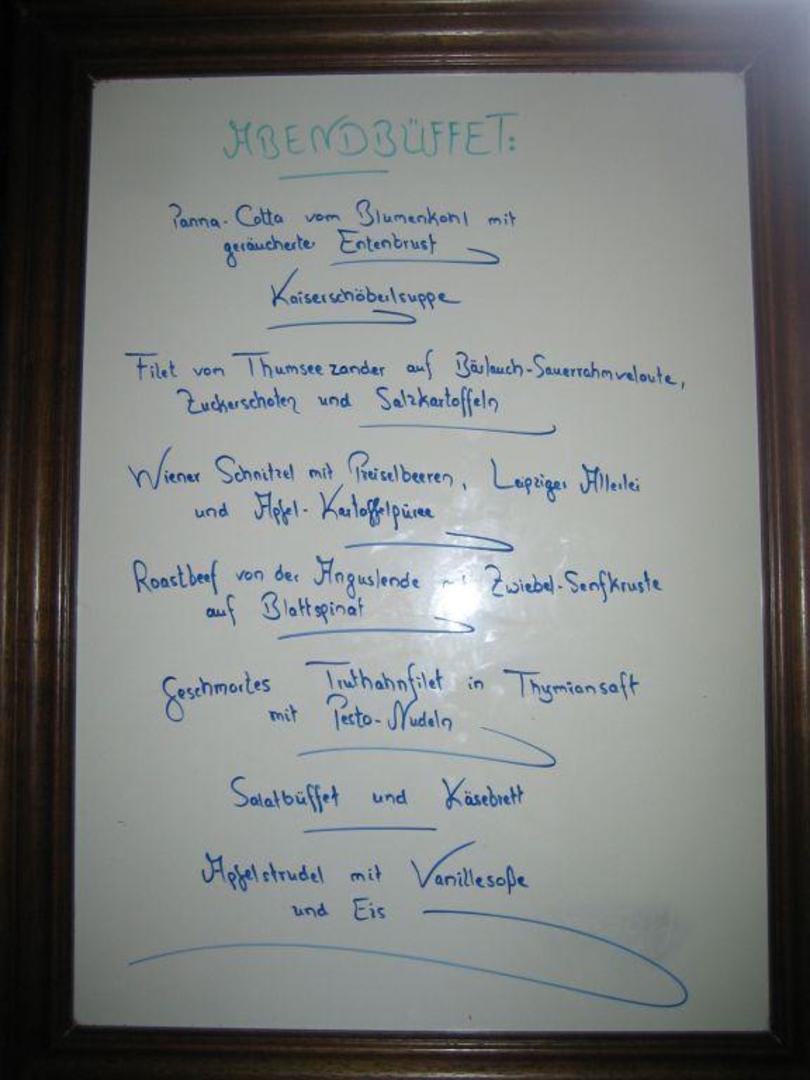 ABENDBÜFFET:
Panna-Cotta vom Blumenkohl mit
geräucherter Entenbrust
Kaiserschöberlsuppe
Filet vom Thumseezander auf Bärlauch-Sauerrahmveloute,
Zuckerschoten und Salzkartoffeln
Wiener Schnitzel mit Preiselbeeren, Leipziger Allerlei
und Apfel-Kartoffelpüree
Roastbeef von der Anguslende Zwiebel-Senfkruste
auf Blattspinat
Geschmortes Truthahnfilet in Thymiansaft
mit Pesto-Nudeln
Salatbüffet und Käsebrett
Apfelstrudel mit Vanillesoße
und Eis